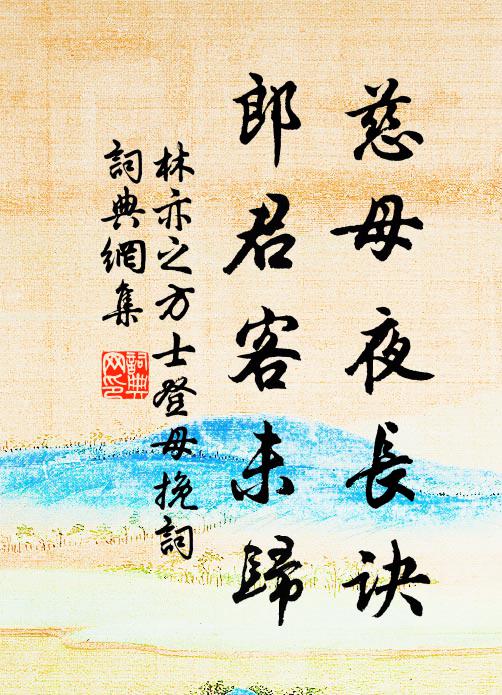 慈母夜長訣
郎君客未歸
林亦之方士登母挽詞
詞典網集
詞典網印